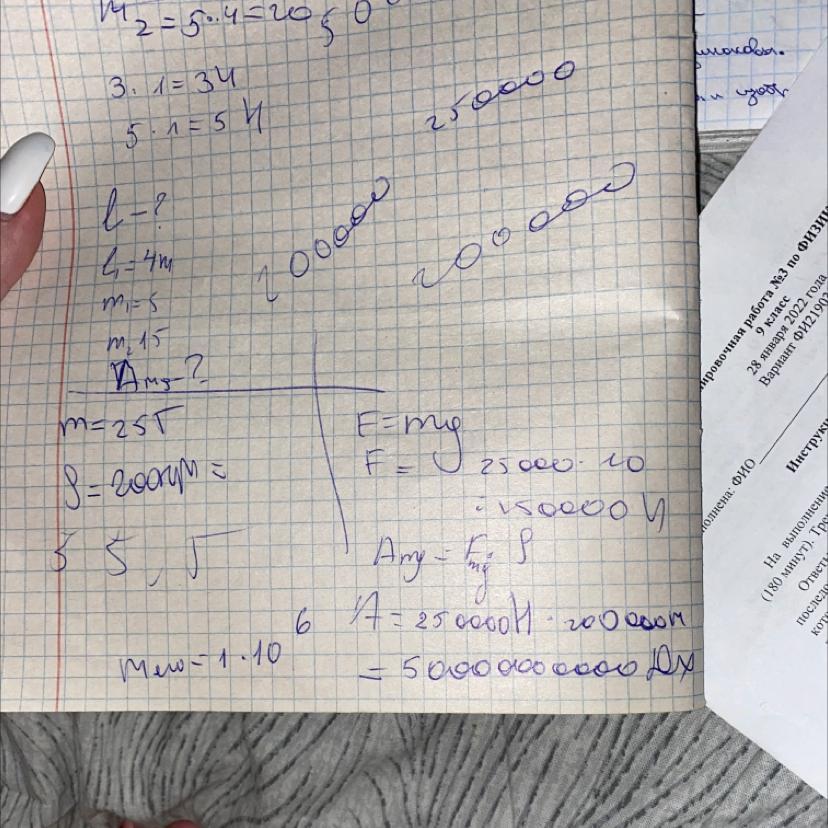 m₂=5·4=20 5 0
3·1=3Ч
5·1=5 Ч
250000
200000
200000
l-?
l₁=4м
m₁=5
m₂15
Amg-?
m=25т
S=200км=
5 5, 5
F=mg
F= 25000·10
=250000 Н
Amg = Fmg · S
A=250000Н·200000м
=50000000000Дж
Mело=1·10⁶
ировочная работа №3 по ФИЗИК
9 класс
28 января 2022 года
Вариант ФИ21903
олнена: ФИО
Инструкц
На выполнение
(180 минут). Тре
Ответы
последо
кот